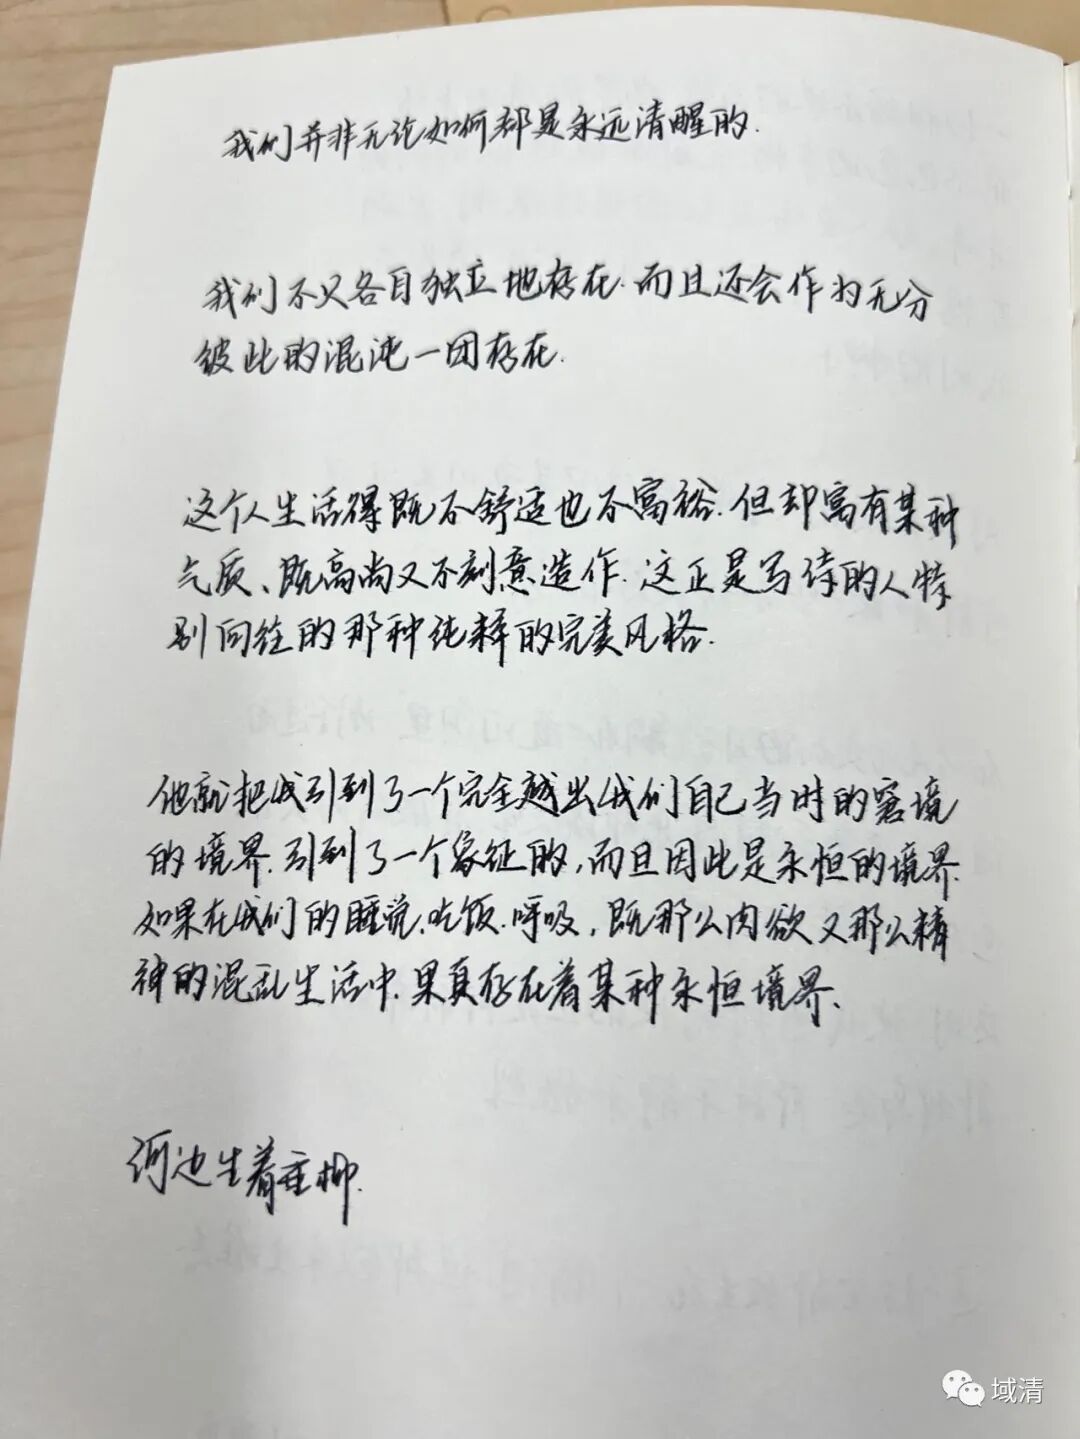 我们并非无论如何都是永远清醒的.
我们不只各自独立地存在.而且还会作为无分
彼此的混沌一团存在.
这个人生活得既不舒适也不富裕.但却富有某种
气质、既高尚又不刻意造作.这正是写诗的人特
别向往的那种纯粹的完美风格.
他就把我引到了一个完全越出我们自己当时的窘境
的境界.引到了一个象征的,而且因此是永恒的境界.
如果在我们的睡觉、吃饭.呼吸,既那么肉欲又那么精
神的混乱生活中.果真存在着某种永恒境界、
河边生着垂柳.
域清